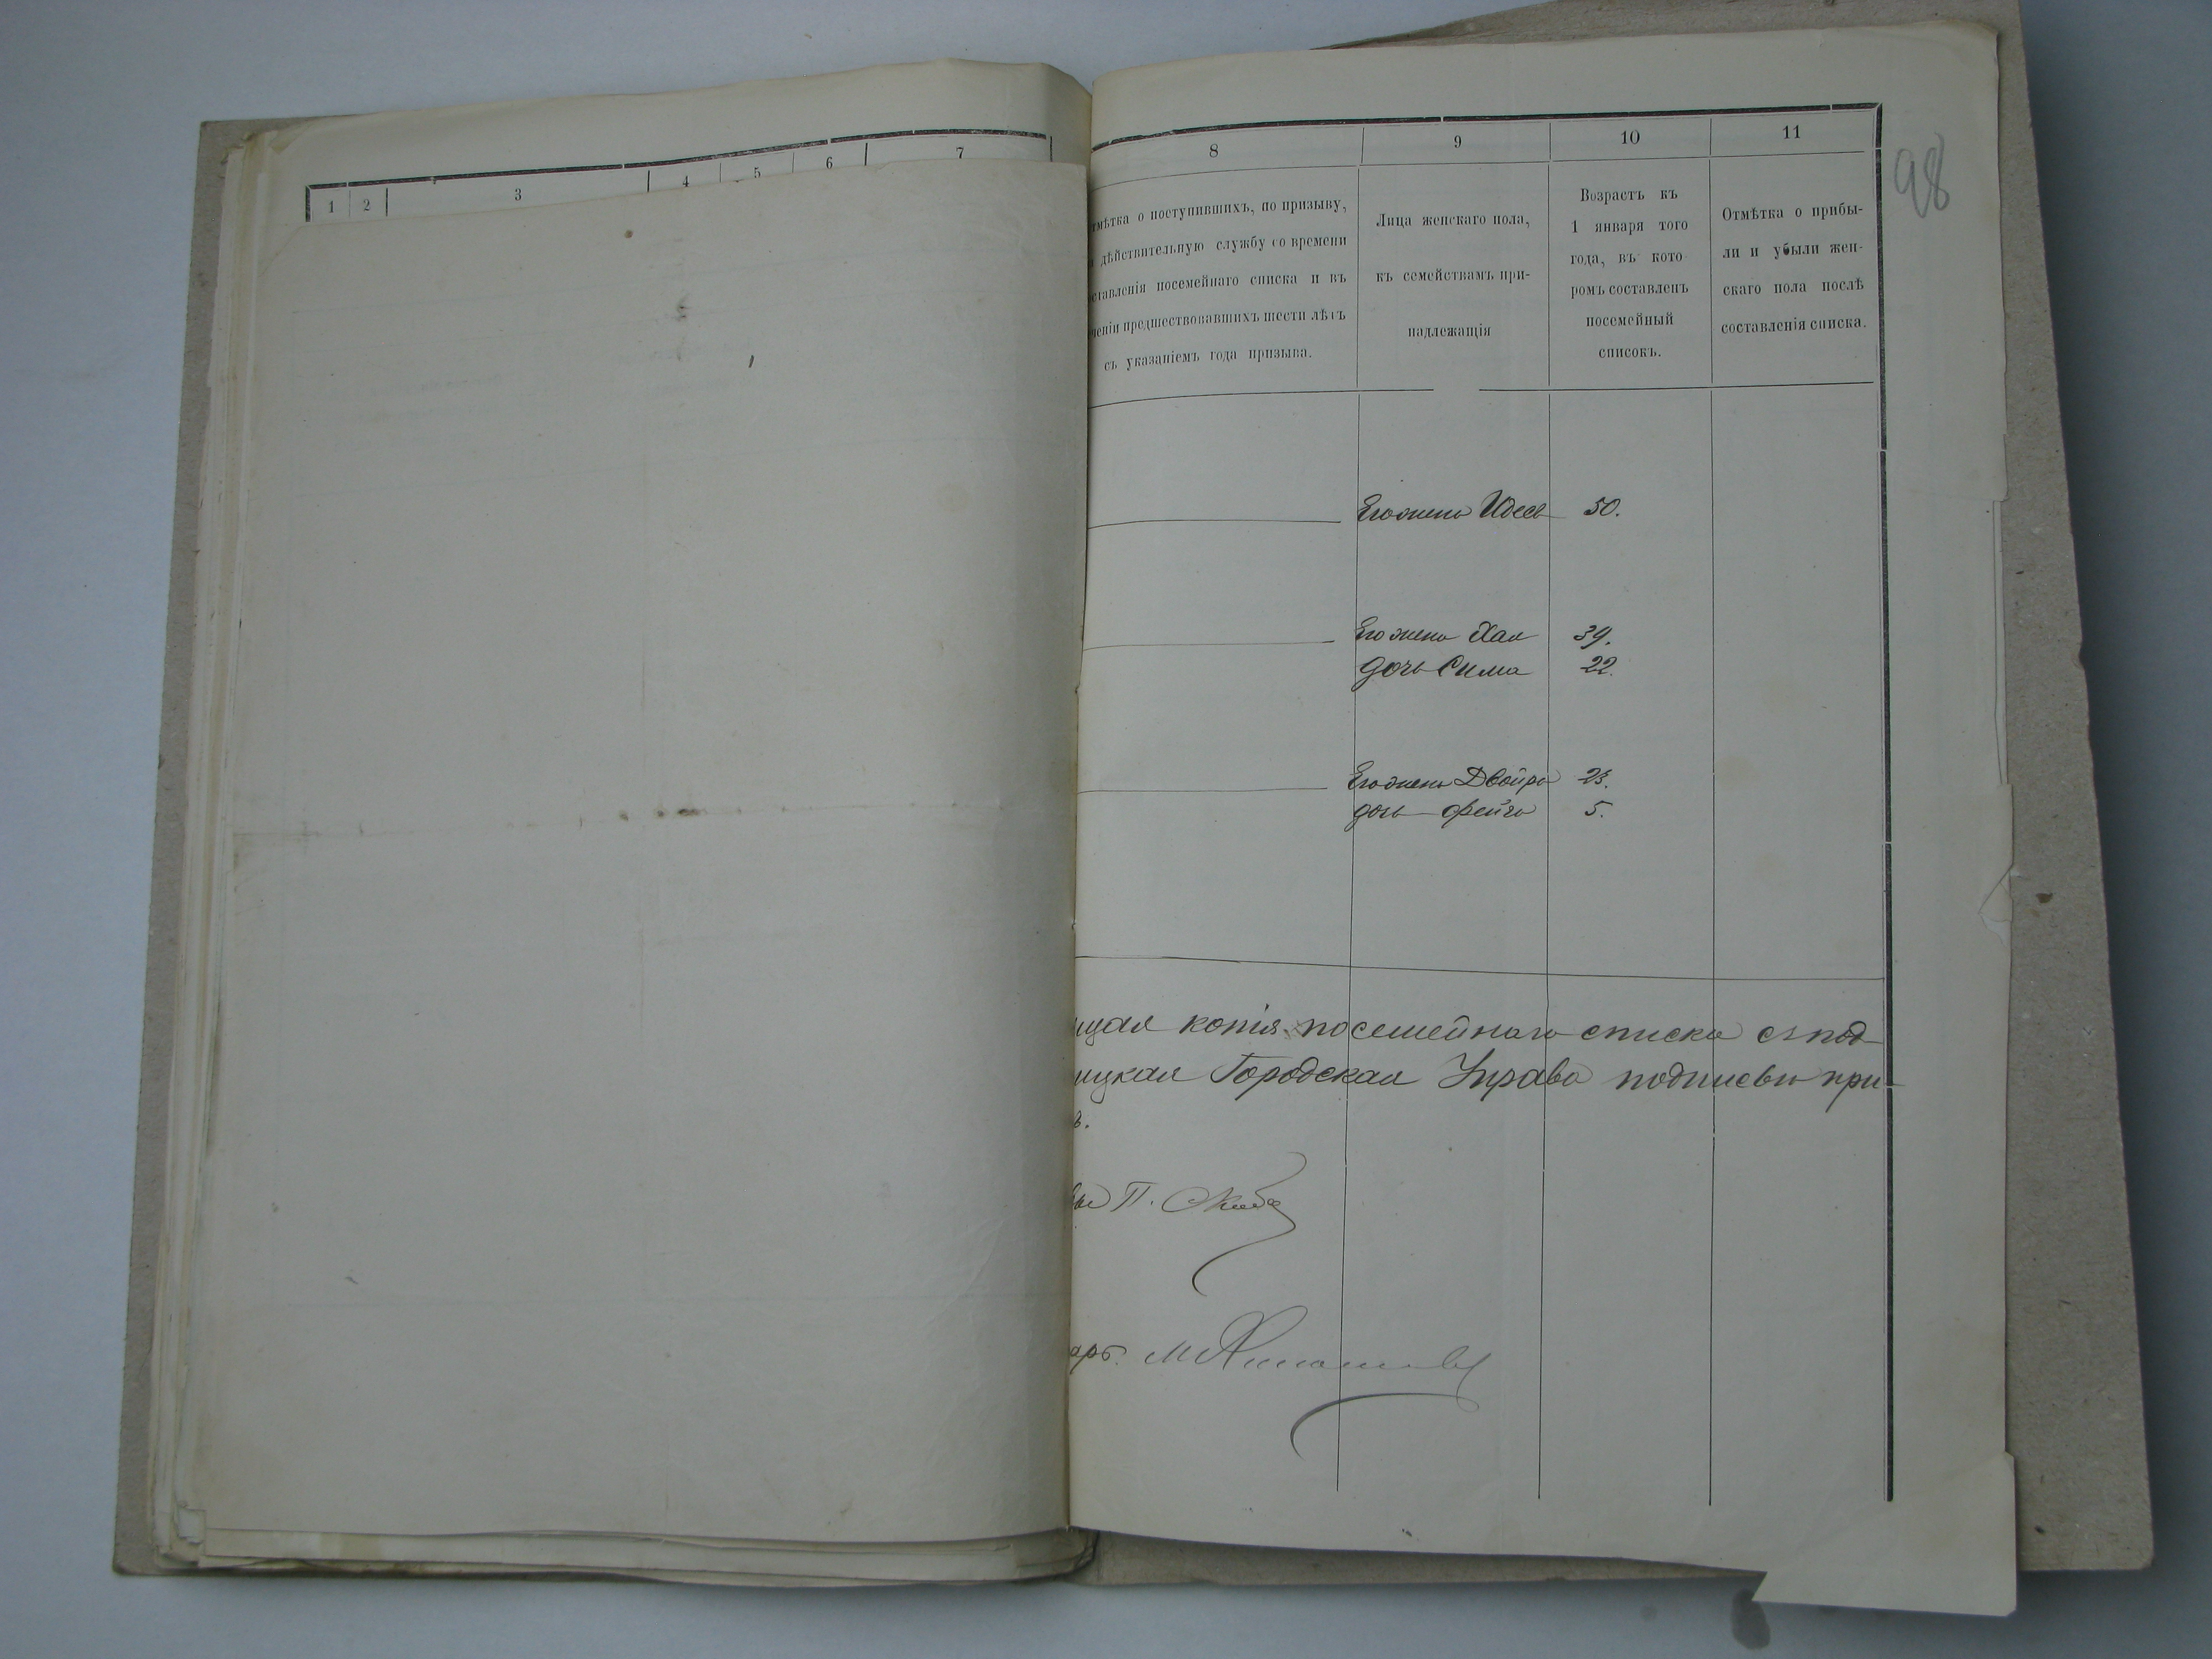 1 2 3 4 5 6 7
8 9 10 11
98
тмѣтка о поступившихъ, по призыву,
дѣйствительную службу со времени
ставленія посемейнаго списка и въ
ченіи предшествовавшихъ шести лѣтъ
съ указаніемъ года призыва.
Лица женскаго пола,
къ семействамъ при-
надлежащія
Возрастъ къ
1 января того
года, въ кото-
ромъ составленъ
посемейный
списокъ.
Отмѣтка о прибы-
ли и убыли жен-
скаго пола послѣ
составленія списка.
Его жена Идесь 50.
Его жена Хая 39.
дочь Сима 22.
Его жена Двойра 23.
дочь Фейга 5.
щая копія посемейнаго списка съ под-
ицкая Городская Управа подписью при-
в.
П.
арь. М